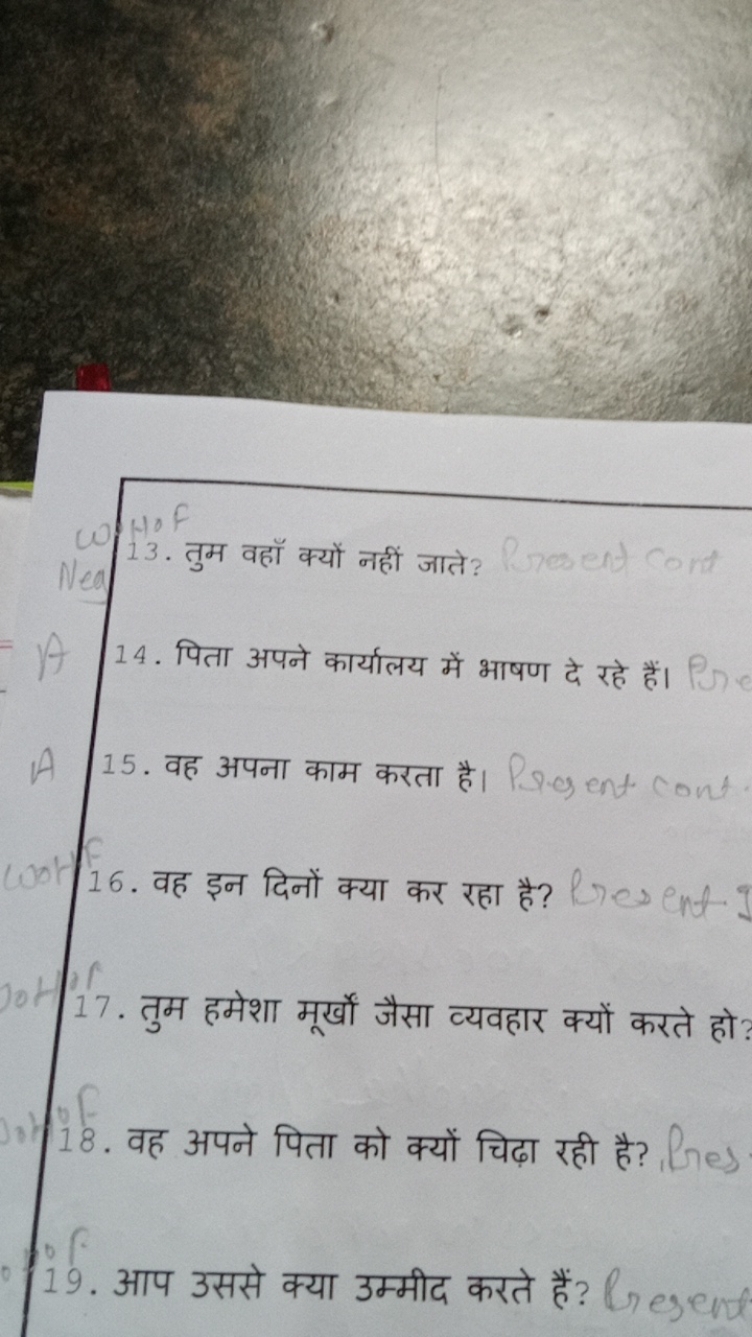 W.H.F
Neg
13. तुम वहाँ क्यों नहीं जाते? Present Cont
A 14. पिता अपने कार्यालय में भाषण दे रहे हैं। Pre
A 15. वह अपना काम करता है। Present cont.
16. वह इन दिनों क्या कर रहा है? Present
17. तुम हमेशा मूर्खों जैसा व्यवहार क्यों करते हो?
18. वह अपने पिता को क्यों चिढ़ा रही है? Pres
19. आप उससे क्या उम्मीद करते हैं? Present